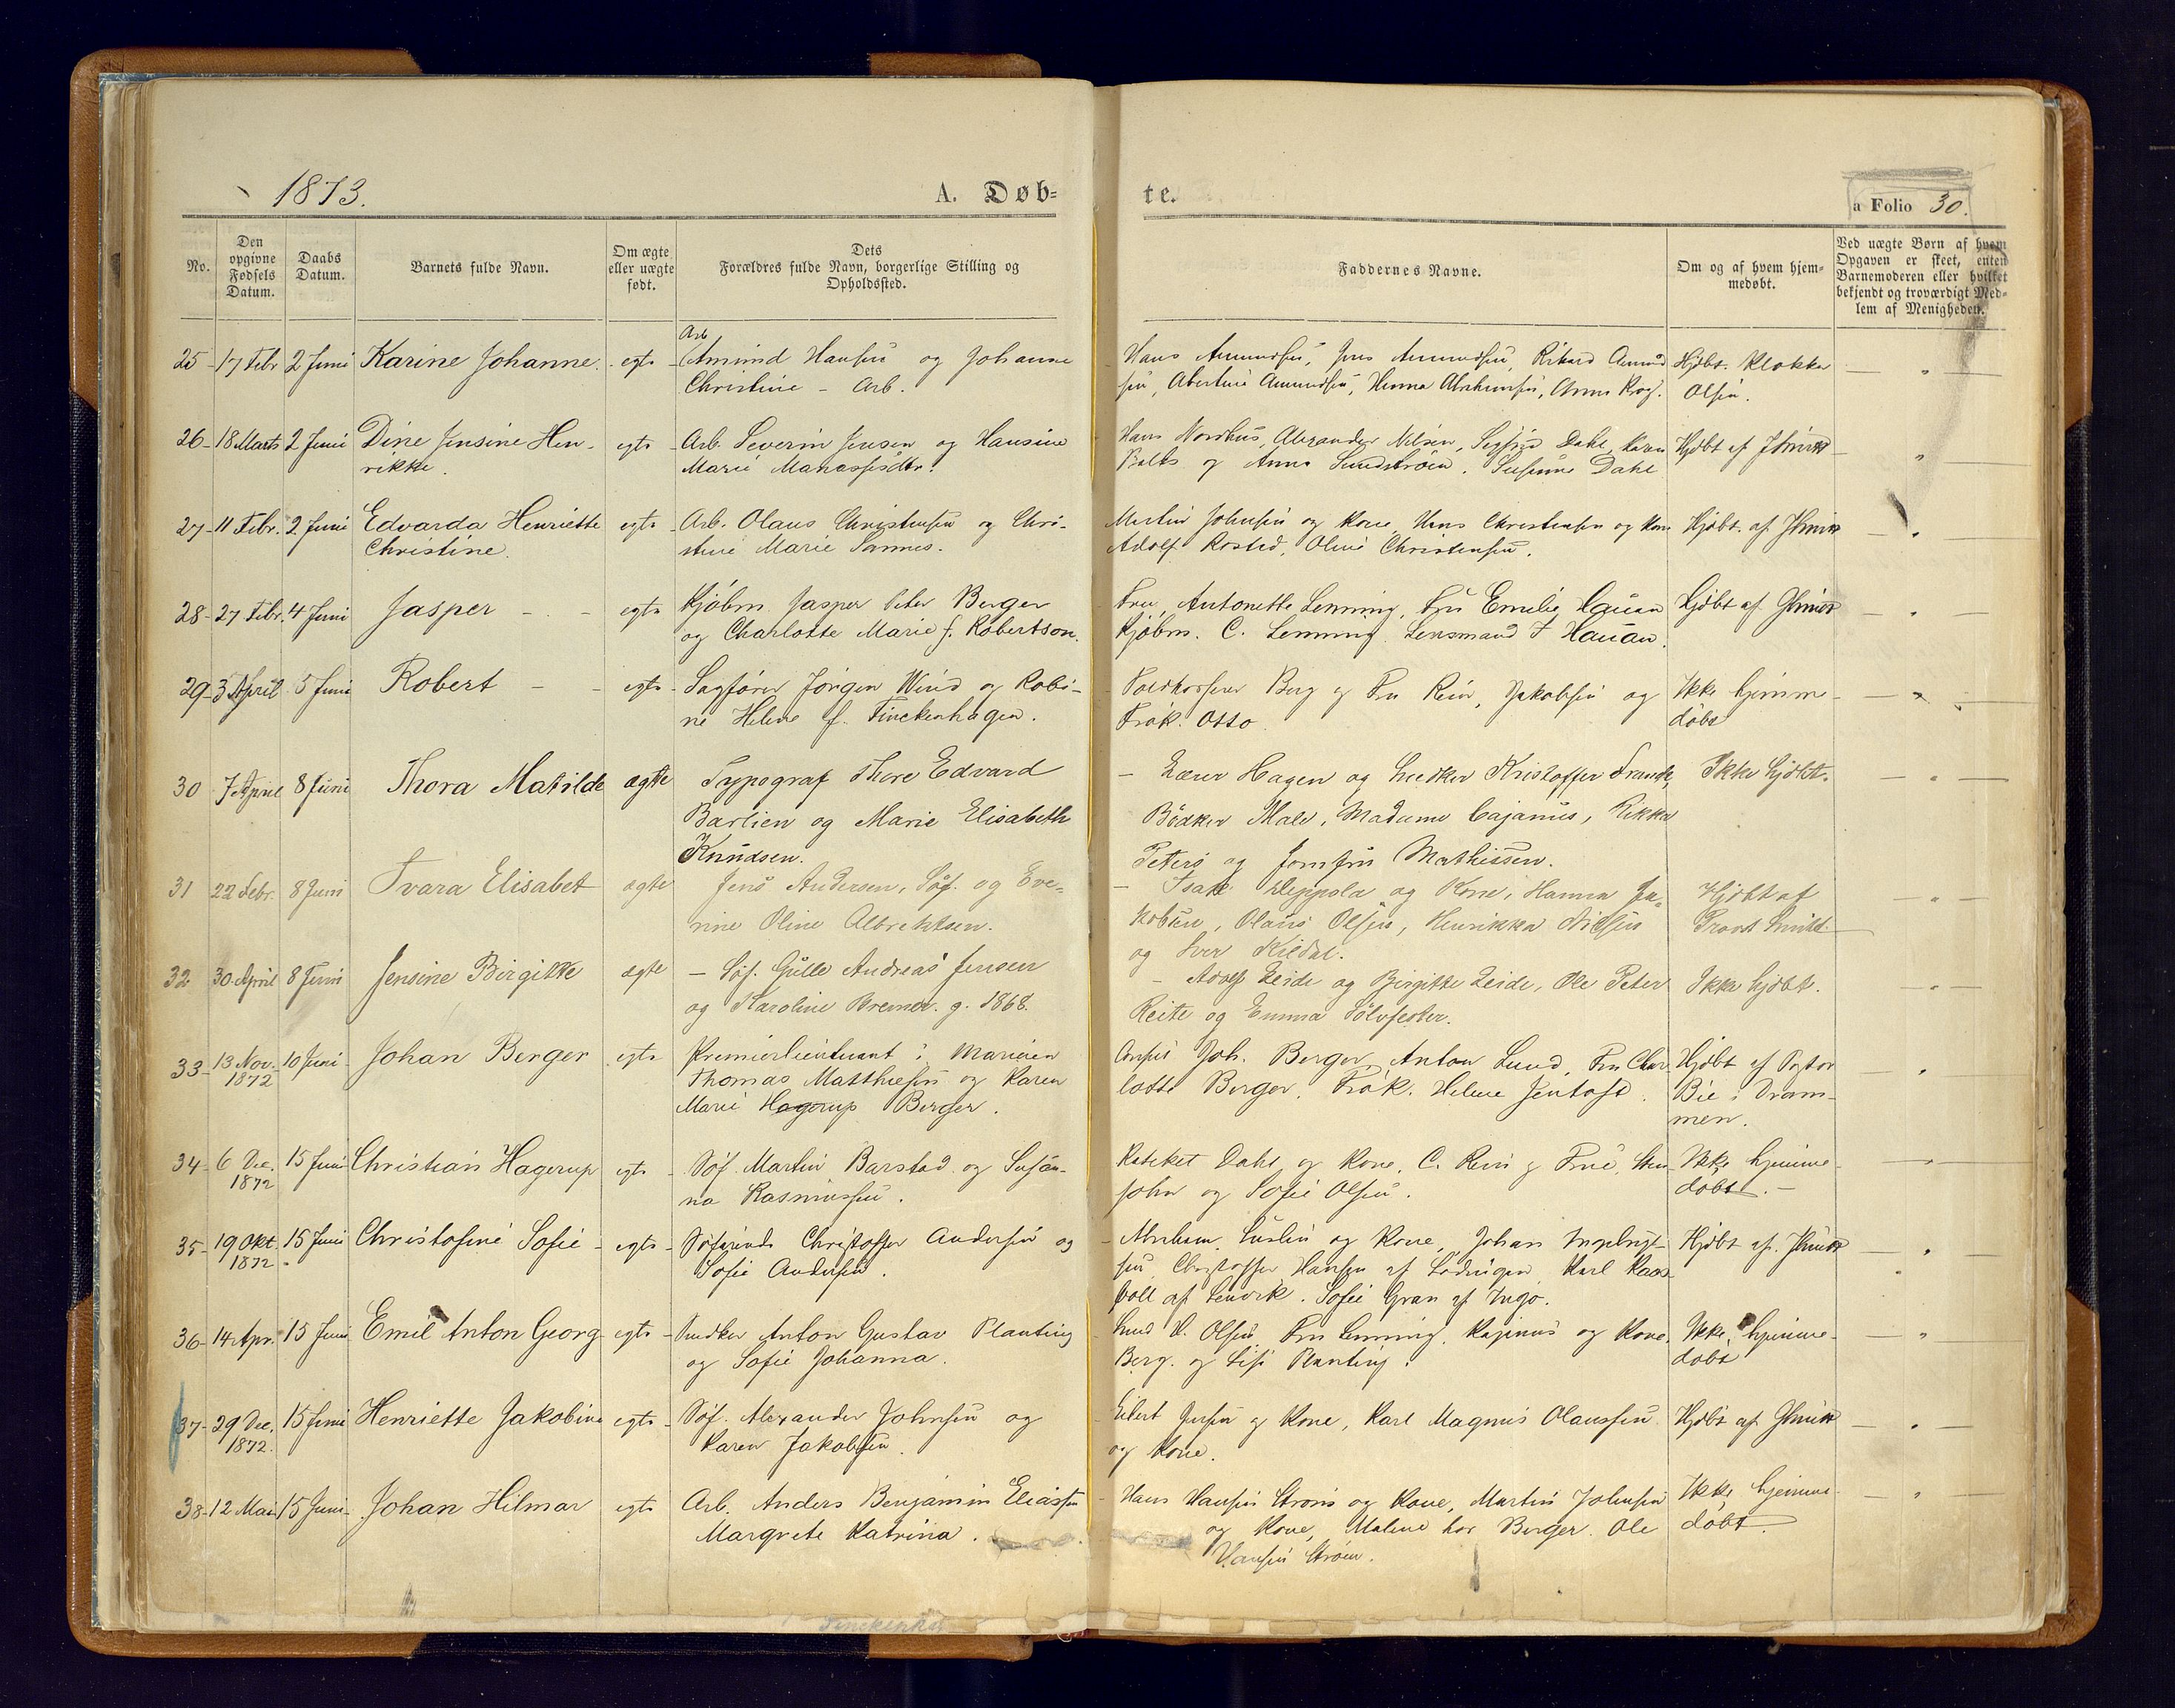 1873.
A. Døb=
te.
a Folio 30.
No.
Den opgivne Fødsels Datum.
Daabs Datum.
Barnets fulde Navn.
Om ægte eller uægte født.
Dets Forældres fulde Navn, borgerlige Stilling og Opholdssted.
Faddernes Navne.
Om og af hvem hjem= medøbt.
Ved uægte Børn af hvem Opgaven er skeet, enten Barnemoderen eller hvilket bekjendt og troværdigt Med= lem af Menigheden.
Arb
25 - 17 Febr 2 Juni Karine Johanne. egte Amund Hansen og Johanne
Christine - Arb.
Hans Amundsen, Jens Amundsen, Rikard Amund
sen, Amundsen, Hanna Abrahamsen, Anna
Hjdbt. Klokker
Olsen.
26 - 18 Marts 2 Juni Dine Jensine Hen-
rikke.
egte Arb. Severin Jensen og Hansine
Marie
Hans Nordhus, Alexander Nilsen, Dahl, Karen
Balks og Anna Sundstrøm. Susanne Dahl
Hjdbt af
27 - 11 Febr. 2 Juni Edvarda Henriette
Christine.
egte - Arb. Olaus Christensen og Chri-
stine Marie Sannes.
Martin Johnsen og Kone, Hans Christensen og Kone
Adolf Rosted, Oline Christensen.
Hjdbt. af
28 - 27 Febr. 4 Juni Jasper - - egte Kjøbm. Jasper Peter Berger
og Charlotte Marie f. Robertson.
Fru Antonette Lemming, Fru Emilie Hauan
Kjøbm. C. Lemming. Lensmand J Hauan.
Hjdbt af
29 - 3 April 5 Juni Robert - - egte - Sagfører Jørgen Wind og Robi-
ne Helene f. Finckenhagen.
Toldkasserer Berg og Fru Rein, Jakobsen og
Frøk. Otto.
Ikke hjemme-
døbt
30 7 April 8 Juni Thora Matilde ægte Typograf Thore Edvard
Barlien og Marie Elisabeth
Knudsen.
- Lærer Hagen og Snedker Kristoffer
Bødker Male, Madame Cajanus, Rikka
Peters og Jomfru Mathissen.
Ikke hjdbt.
31 22 Febr. 8 Juni Svara Elisabet ægte Jens Andersen, Søf. og Eve-
rine Oline Albrektsen.
- Isak og Kone, Hanna Ja-
kobsen, Olaus Olsen, Henrikka Nielsen
og Kildal.
Hjdbt af
Provst
32 30 April 8 Juni Jensine Birgitte ægte - Søf. Gulle Andreas Jensen
og Karoline Bremer. g. 1868.
- Adolf Zeide og Birgitte Zeide, Ole Peter
Reite og Emma
Ikke hjdbt.
33 - 13 Nov. 10 Juni - Johan Berger egte Premierlieutenant i Marinen
1872
Thomas Matthiesen og Karen
Marie Hagerup Berger.
Consul Joh. Berger, Anton Lund, Fru Char-
lotte Berger. Frøk. Helene Jentoft.
Hjdbt af Pastor
Bie i Dram-
men.
34 - 6 Dec. 15 Juni Christian Hagerup egte - Søf. Martin Barstad og Susan-
1872
na Rasmussen.
Kateket Dahl og Kone, C. Rein og Frue,
og Sofie Olsen.
Ikke hjemme-
døbt. -
35 - 19 Okt. 15 Juni Christofine Sofie - egte - Søfarende Christoffer Andersen og
1872
Sofie Andersen.
- Abraham og Kone, Johan Ingebrigt-
sen, Christoffer Hansen af Lødingen, Karl
af Lenvik. Sofie Gran af Ingø.
Hjdbt af.
36 - 14 Apr. 15 Juni Emil Anton Georg egte - Snedker Anton Gustav Planting
og Sofie Johanna.
Olsen, Fru Lemming, Kajanus og Kone.
Berg. og Planting.
Ikke hjemme-
døbt
37 - 29 Dec. 15 Juni Henriette Jakobine egte - Søf. Alexander Johnsen og
1872.
Karen Jakobsen.
Eilert Jensen og Kone, Karl Magnus Olaussen
og Kone.
Hjdbt af
38 - 12 Mai 15 Juni - Johan Hilmar egte Arb. Anders Benjamin Eliassen
Margrete Katrina.
Hans Hansen Strøm og Kone, Martin Johnsen
og Kone, Malene hos Berger. Ole
Hansen Strøm.
Ikke hjemme-
døbt.